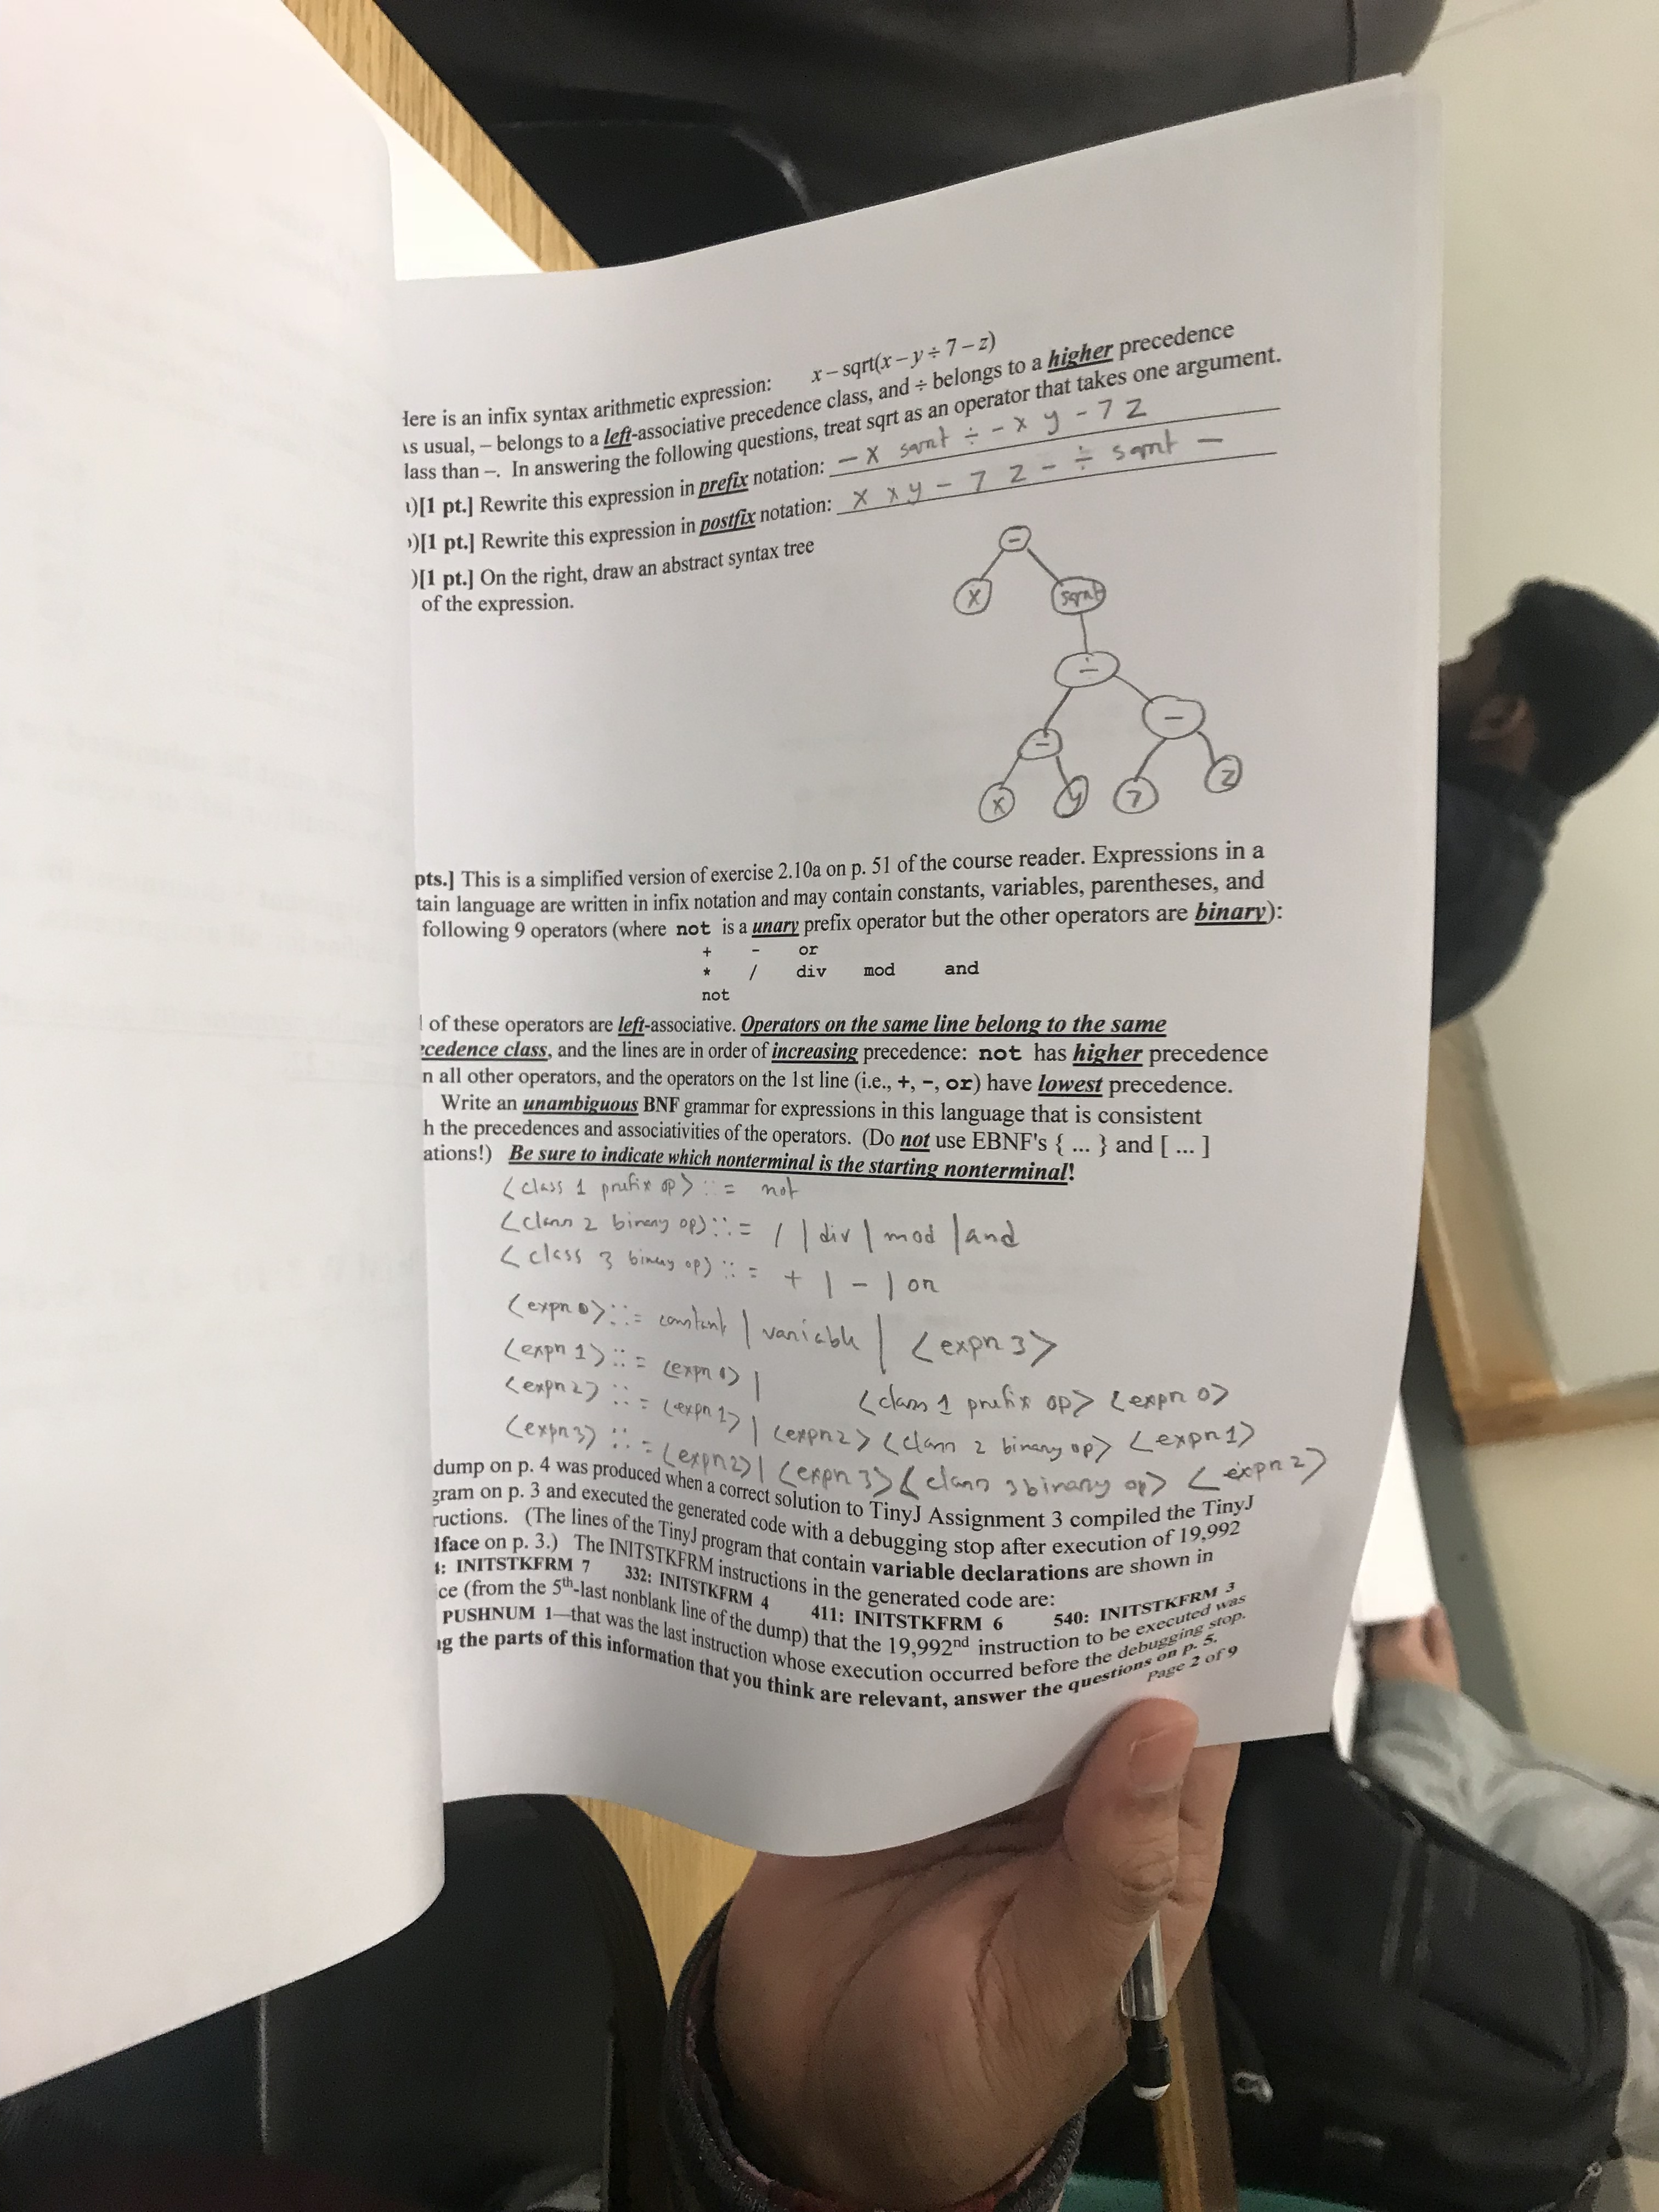 Here is an infix syntax arithmetic expression: x – sqrt(x – y ÷ 7 – z)
As usual, – belongs to a left-associative precedence class, and ÷ belongs to a higher precedence
lass than –. In answering the following questions, treat sqrt as an operator that takes one argument.
)[1 pt.] Rewrite this expression in prefix notation: – x sqrt ÷ – x y – 7 z
)[1 pt.] Rewrite this expression in postfix notation: x x y – 7 z – ÷ sqrt –
)[1 pt.] On the right, draw an abstract syntax tree
of the expression.
–
x sqrt
÷
– –
x y 7 z
pts.] This is a simplified version of exercise 2.10a on p. 51 of the course reader. Expressions in a
tain language are written in infix notation and may contain constants, variables, parentheses, and
following 9 operators (where not is a unary prefix operator but the other operators are binary):
+ - or
* / div mod and
not
l of these operators are left-associative. Operators on the same line belong to the same
ecedence class, and the lines are in order of increasing precedence: not has higher precedence
n all other operators, and the operators on the 1st line (i.e., +, –, or) have lowest precedence.
Write an unambiguous BNF grammar for expressions in this language that is consistent
h the precedences and associativities of the operators. (Do not use EBNF's { ... } and [ ... ]
ations!) Be sure to indicate which nonterminal is the starting nonterminal!
<class 1 prefix op> ::= not
<class 2 binary op> ::= / | div | mod | and
<class 3 binary op> ::= + | - | or
<expr 0> ::= constant | variable | <expr 3>
<expr 1> ::= <expr 0> | <class 1 prefix op> <expr 0>
<expr 2> ::= <expr 1> | <expr 2> <class 2 binary op> <expr 1>
<expr 3> ::= <expr 2> | <expr 3> <class 3 binary op> <expr 2>
dump on p. 4 was produced when a correct solution to TinyJ Assignment 3 compiled the TinyJ
gram on p. 3 and executed the generated code with a debugging stop after execution of 19,992
ructions. (The lines of the TinyJ program that contain variable declarations are shown in
lface on p. 3.) The INITSTKFRM instructions in the generated code are:
4: INITSTKFRM 7 332: INITSTKFRM 4 411: INITSTKFRM 6 540: INITSTKFRM 3
ce (from the 5th-last nonblank line of the dump) that the 19,992nd instruction to be executed was
PUSHNUM 1—that was the last instruction whose execution occurred before the debugging stop.
ng the parts of this information that you think are relevant, answer the questions on p. 5.
Page 2 of 9